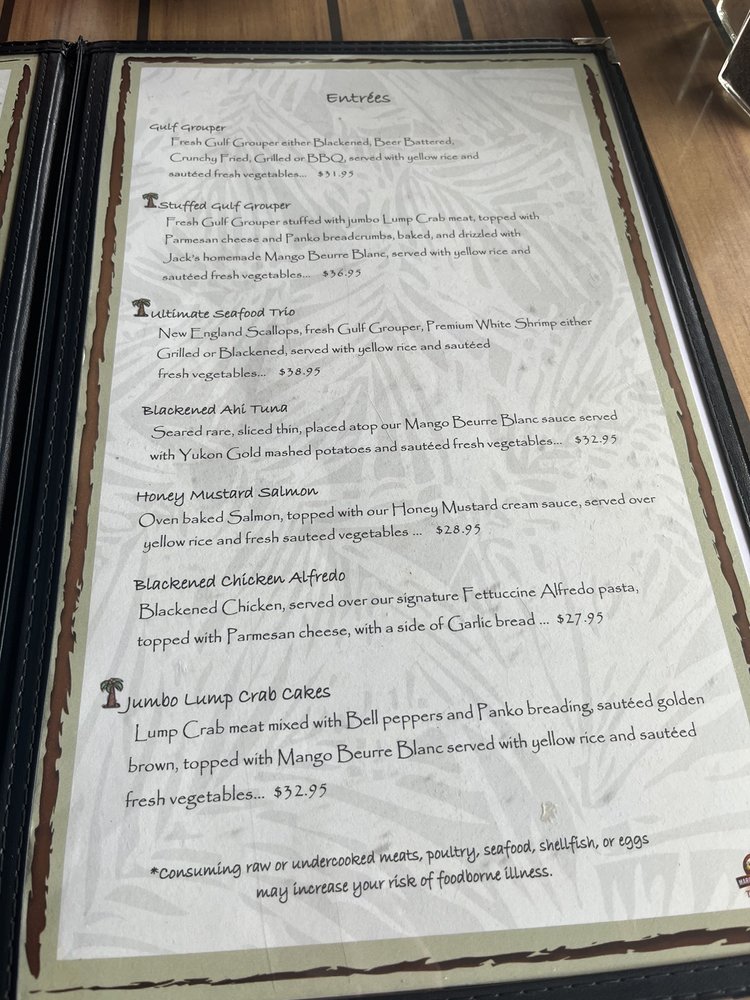 Entrées
Gulf Grouper
Fresh Gulf Grouper either Blackened, Beer Battered,
Crunchy Fried, Grilled or BBQ, served with yellow rice and
sautéed fresh vegetables... $31.95
Stuffed Gulf Grouper
Fresh Gulf Grouper stuffed with jumbo Lump Crab meat, topped with
Parmesan cheese and Panko breadcrumbs, baked, and drizzled with
Jack's homemade Mango Beurre Blanc, served with yellow rice and
sautéed fresh vegetables... $36.95
Ultimate Seafood Trio
New England Scallops, fresh Gulf Grouper, Premium White Shrimp either
Grilled or Blackened, served with yellow rice and sautéed
fresh vegetables... $38.95
Blackened Ahi Tuna
Seared rare, sliced thin, placed atop our Mango Beurre Blanc sauce served
with Yukon Gold mashed potatoes and sautéed fresh vegetables... $32.95
Honey Mustard Salmon
Oven baked Salmon, topped with our Honey Mustard cream sauce, served over
yellow rice and fresh sauteed vegetables ... $28.95
Blackened Chicken Alfredo
Blackened Chicken, served over our signature Fettuccine Alfredo pasta,
topped with Parmesan cheese, with a side of Garlic bread ... $27.95
Jumbo Lump Crab Cakes
Lump Crab meat mixed with Bell peppers and Panko breading, sautéed golden
brown, topped with Mango Beurre Blanc served with yellow rice and sautéed
fresh vegetables... $32.95
*Consuming raw or undercooked meats, poultry, seafood, shellfish, or eggs
may increase your risk of foodborne illness.